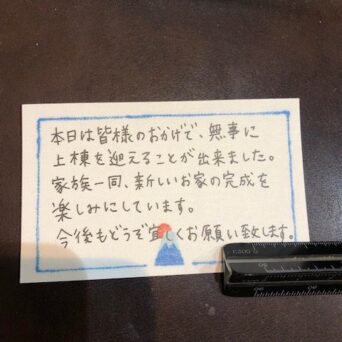 本日は皆様のおかげで、無事に
上棟を迎えることが出来ました。
家族一同、新しいお家の完成を
楽しみにしています。
今後もどうぞ宜しくお願い致します。